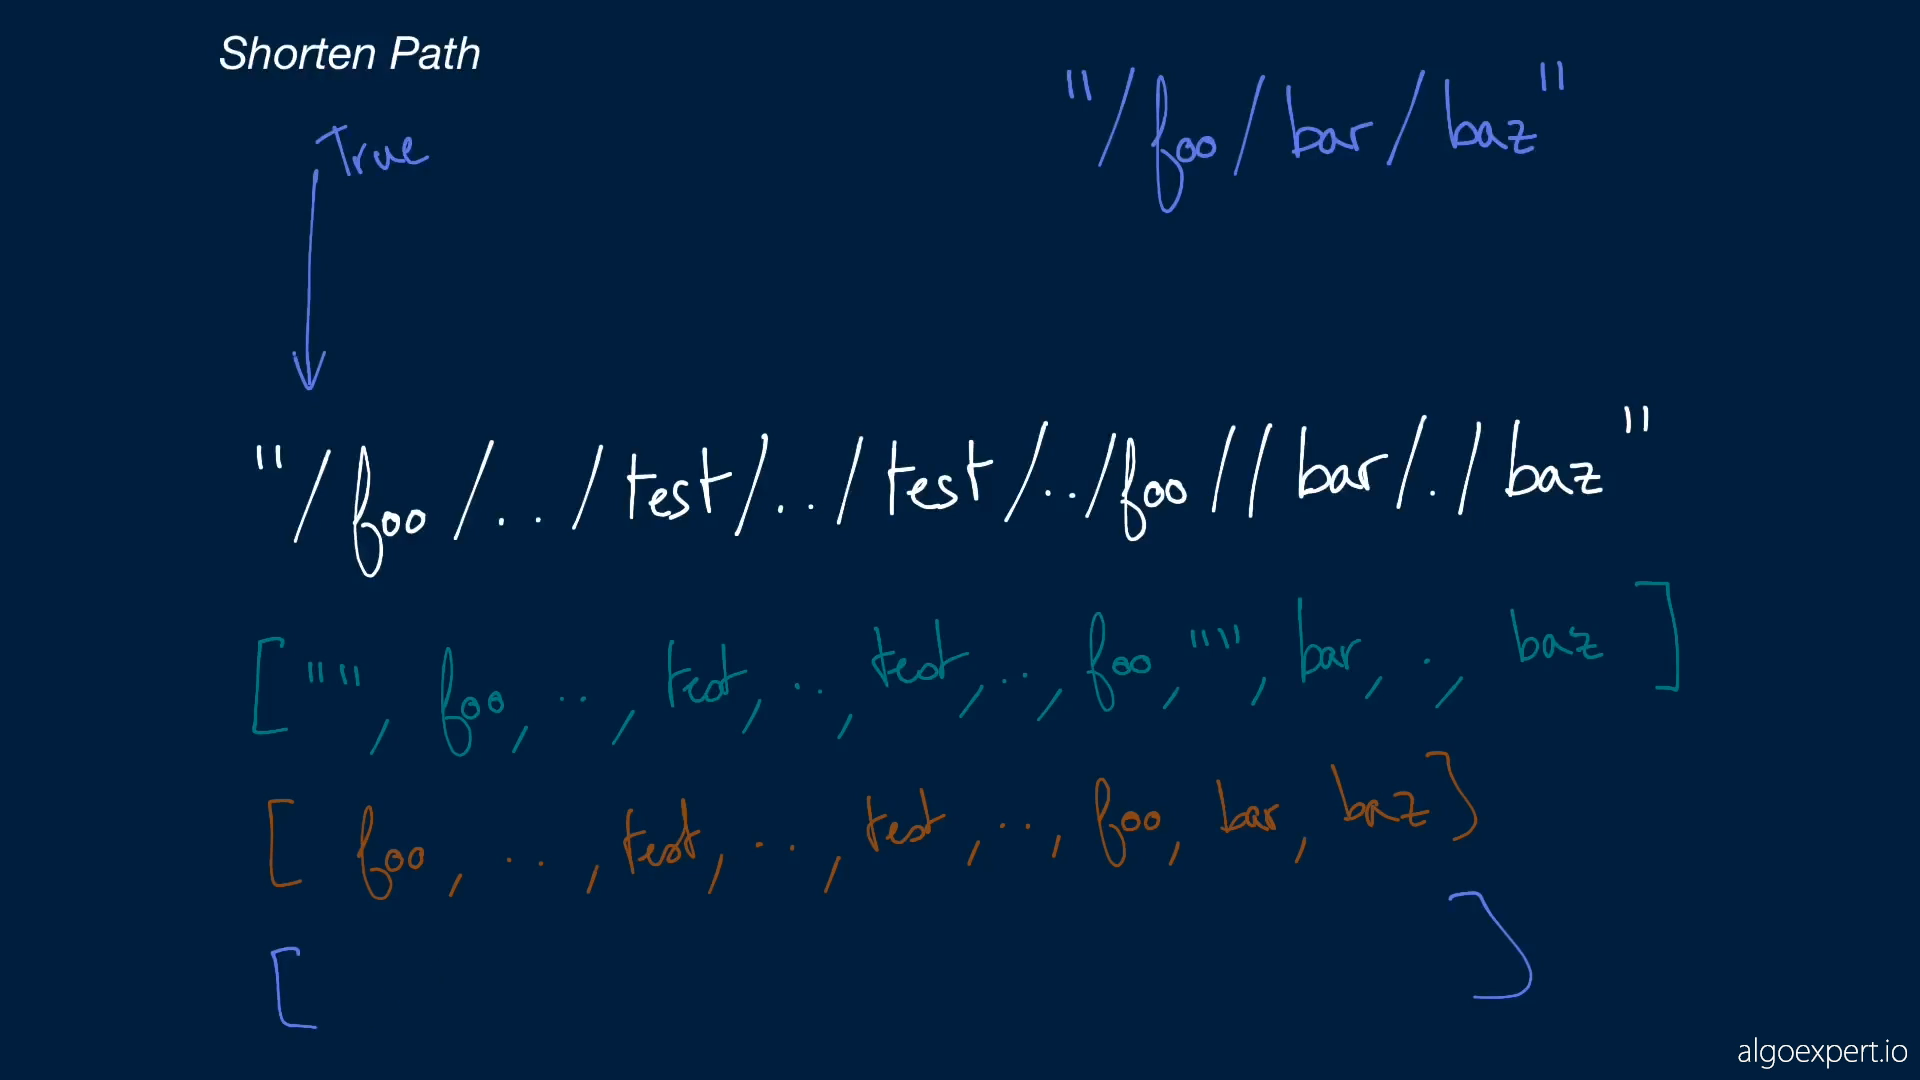 Shorten Path
"/foo/bar/baz"
True
"/foo/../test/../test/../foo//bar/./baz"
["", foo, .., test, .., test, .., foo, "", bar, ., baz]
[foo, .., test, .., test, .., foo, bar, baz]
[ ]
algoexpert.io